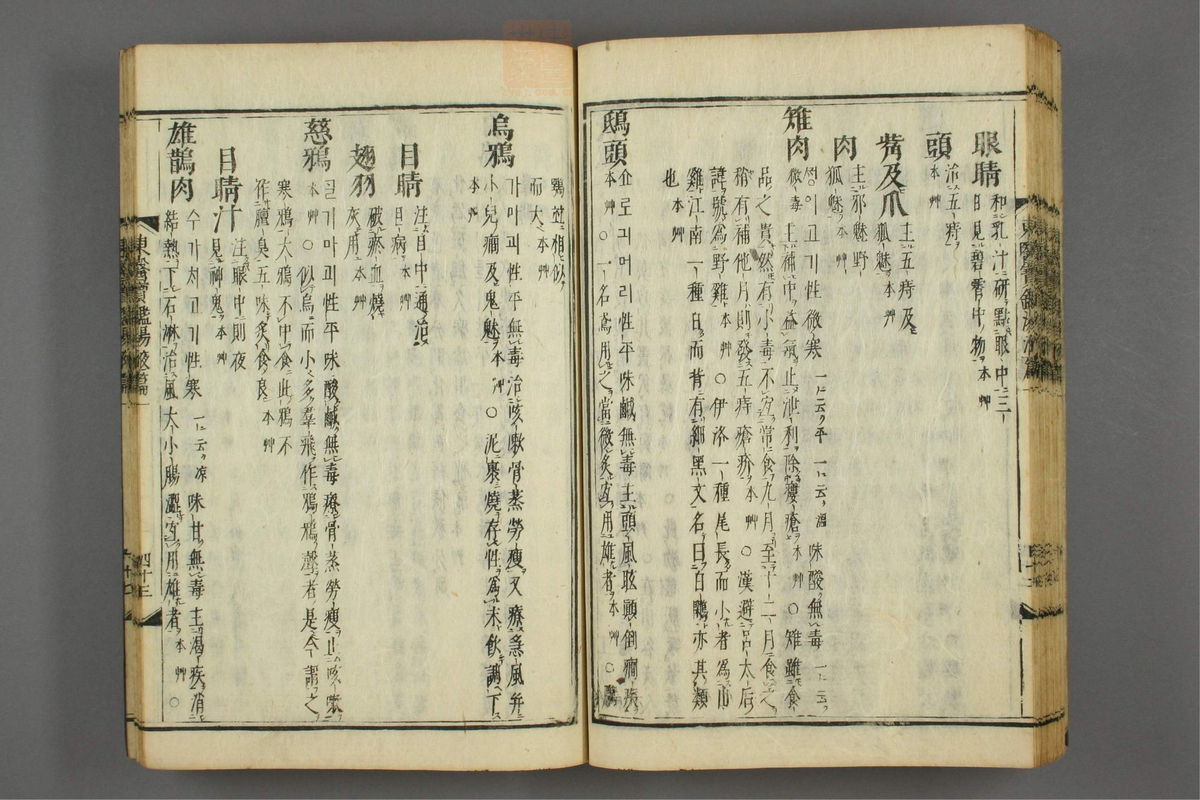 眼睛 和乳汁研點眼中三
日見碧霄中物 本艸
頭 治五痔
本艸
觜及爪 主五痔及
狐魅 本艸
肉 主邪魅野
狐魅 本艸
雉肉 이고기性微寒 一云平 一云溫 味酸無毒 一云
微毒 主補中益氣止泄利除瘻瘡 本艸 ○雉雖食
品之貴然有小毒不宜常食九月至十二月食之
稍有補他月則發五痔瘡疥 本艸 ○漢避呂太后
諱號爲野雞 本艸 ○伊洛一種尾長而小者爲山
雞江南一種白而背有細黑文名曰白鷴亦其類
也 本艸
鴟頭 쇼로기머리性平味鹹無毒主頭風眩顚倒癎疾
本艸 ○一名鳶用之當微炙宜用雄者 本艸 ○
相似
而大 本艸
烏鴉 가마괴性平無毒治咳嗽骨蒸勞瘦又療急風幷
小兒癎及鬼魅 本艸 ○泥裹燒存性爲末飮調下
本艸
目睛 注目中通治
目病 本艸
翅羽 破瘀血燒
灰用 本艸
慈鴉 가마괴性平味酸鹹無毒療骨蒸勞瘦止咳嗽
本艸 ○似烏而小多羣飛作鴉鴉聲者是今謂之
寒鴉大鴉不中食此鴉不
作膻臭五味炙食良 本艸
目睛汁 注眼中則夜
見神鬼 本艸
雄鵲肉 수가치고기性寒 一云凉 味甘無毒主渴疾消
結熱下石淋治風大小腸澁宜用雄者 本艸 ○
四十三